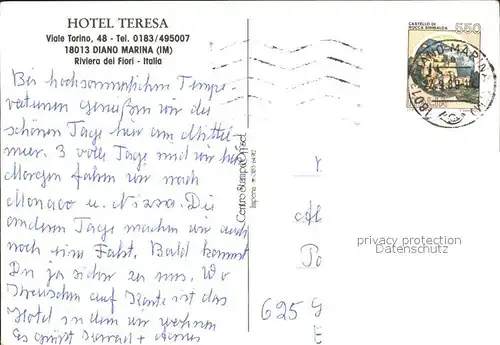 HOTEL TERESA
Viale Torino, 48 - Tel. 0183/495007
18013 DIANO MARINA (IM)
Riviera dei Fiori - Italia
CASTELLO DI
ROCCA SINIBALDA
550
Bei hochsommerlichen Tempe-
raturen genießen wir die
schönen Tage hier am Mittel-
meer. 3 volle Tage sind wir hier
Morgen fahren wir nach
Monaco u. Nizza. Die
anderen Tage machen wir auch
noch eine Fahrt. Bald kommst
Du ja sicher zu uns. Wo
Kreuzchen auf Karte ist das
Hotel in dem wir wohnen
Es grüßt
Centro Stampa Offset
Imperia
privacy protection
www.ansichtskarten-center.de
625